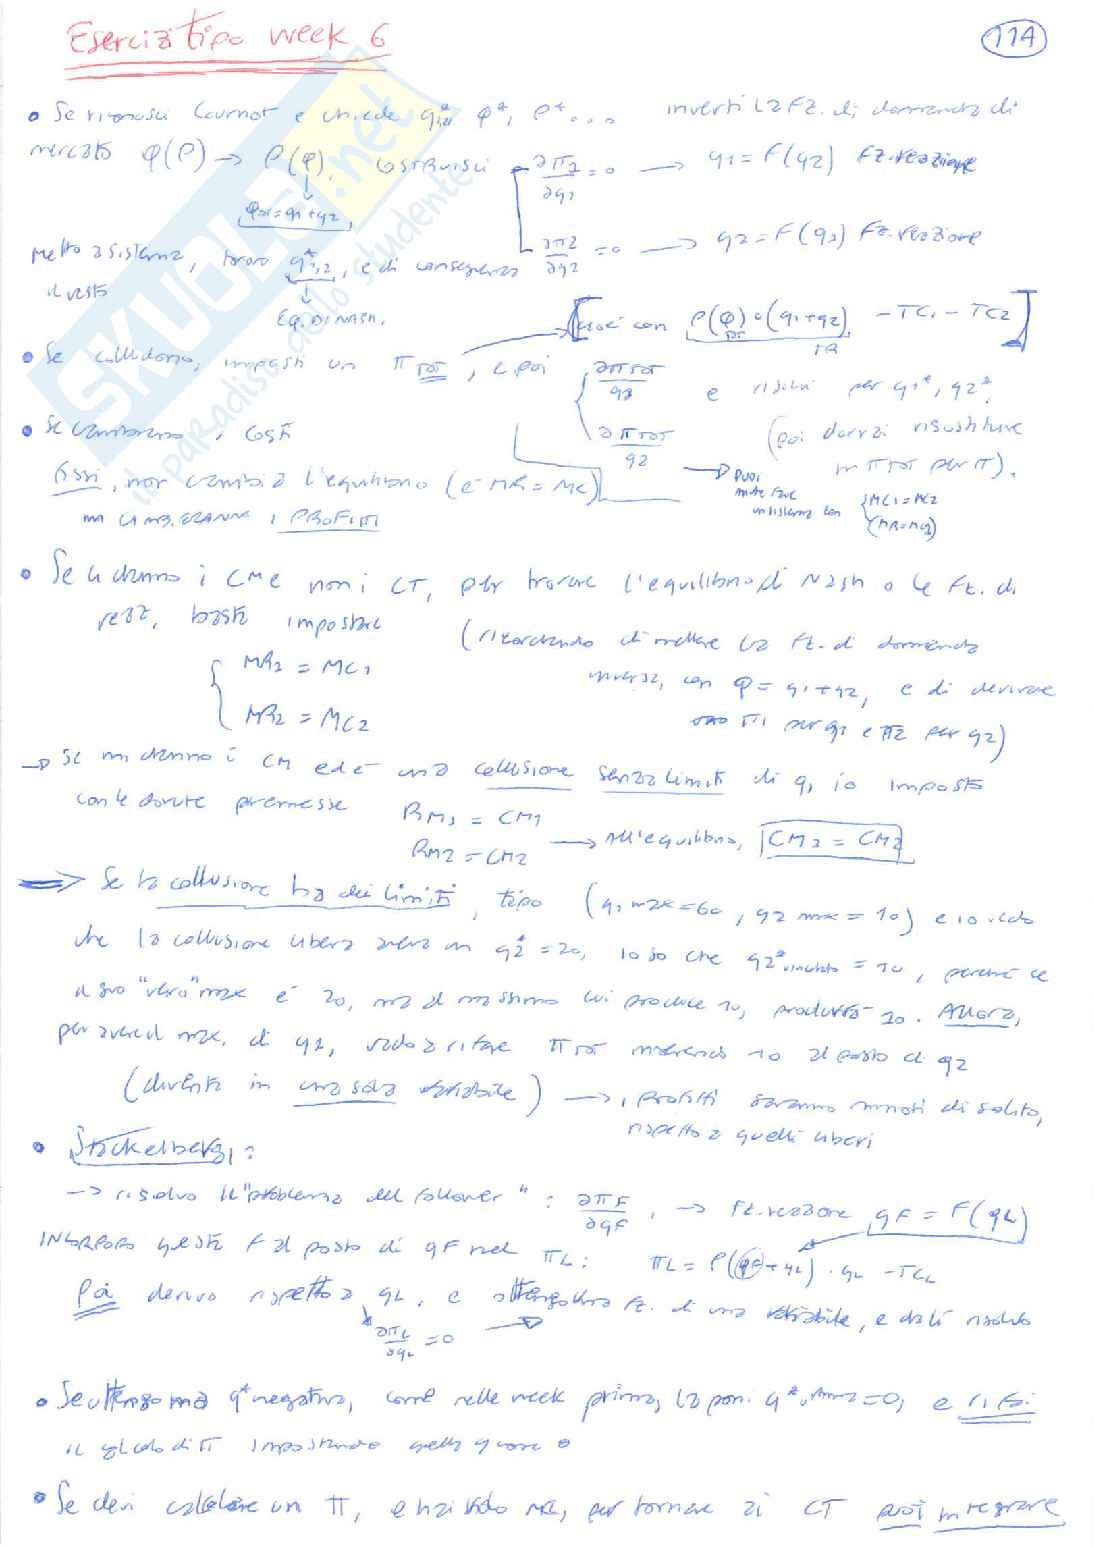 Esercizi tipo week 6
114
• Se riconosci Cournot e chiede q*1,2, Q*, P*... inverti la fz. di domanda di
mercato Q(P) → P(Q). Costruisci ∂π1/∂q1 = 0 → q1 = F(q2) fz. reazione
QTOT = q1+q2
∂π2/∂q2 = 0 → q2 = F(q1) fz. reazione
Metto a sistema, trovo q*1,2, e di conseguenza
il resto
EQ. DI NASH.
[cioè con P(Q)·(q1+q2) - TC1 - TC2]
TR
• Se colludono, imposti un πTOT, e poi { ∂πTOT/q1
∂πTOT/q2
e risolvi per q1*, q2*.
(poi dovrai risostituire
in πTOT per π).
• Se cambiano i costi
fissi, non cambia l'equilibrio (è MR = MC)
ma CAMBIERANNO i PROFITTI
→ puoi
anche fare
un sistema con { MC1 = MC2
(MR=MC2)
• Se ti danno i CM e non i CT, per trovare l'equilibrio di Nash o le fz. di
reaz, basta impostare
{ MR1 = MC1
MR2 = MC2
(ricordando di mettere la fz. di domanda
inversa, con Q = q1+q2, e di derivare
π1 per q1 e π2 per q2)
→ Se mi danno i CM ed è una collusione senza limiti di q, io imposto
con le dovute premesse
RM1 = CM1
RM2 = CM2 → All'equilibrio, CM1 = CM2
⇒ Se la collusione ha dei limiti, tipo (q1 max = 60, q2 max = 10) e io vedo
che la collusione libera aveva un q2* = 20, io so che q2* vincolato = 10, perché se
il suo "vero" max è 20, ma al massimo lui produce 10, produrrà 10. Allora,
per avere il max. di q1, vado a rifare πTOT mettendo 10 al posto di q2
(diventa in una sola variabile) → i profitti saranno minori di solito,
rispetto a quelli liberi
• Stackelberg:
→ risolvo il "problema del follower": ∂πF/∂qF, → fz. reazione qF = F(qL)
INCORPORO questa F al posto di qF nel πL: πL = P(qF+qL)·qL - TCL
Poi derivo rispetto a qL, e ottengo una fz. di una variabile, e da lì risolvo
∂πL/∂qL = 0
• Se ottengo una q* negativa, come nelle week prima, la poni q* = 0, e rifai
il calcolo di π impostando quella q come 0
• Se devi calcolare un π, e hai solo MC, per tornare ai CT puoi integrare
SKUOLA.net
il paradiso dello studente